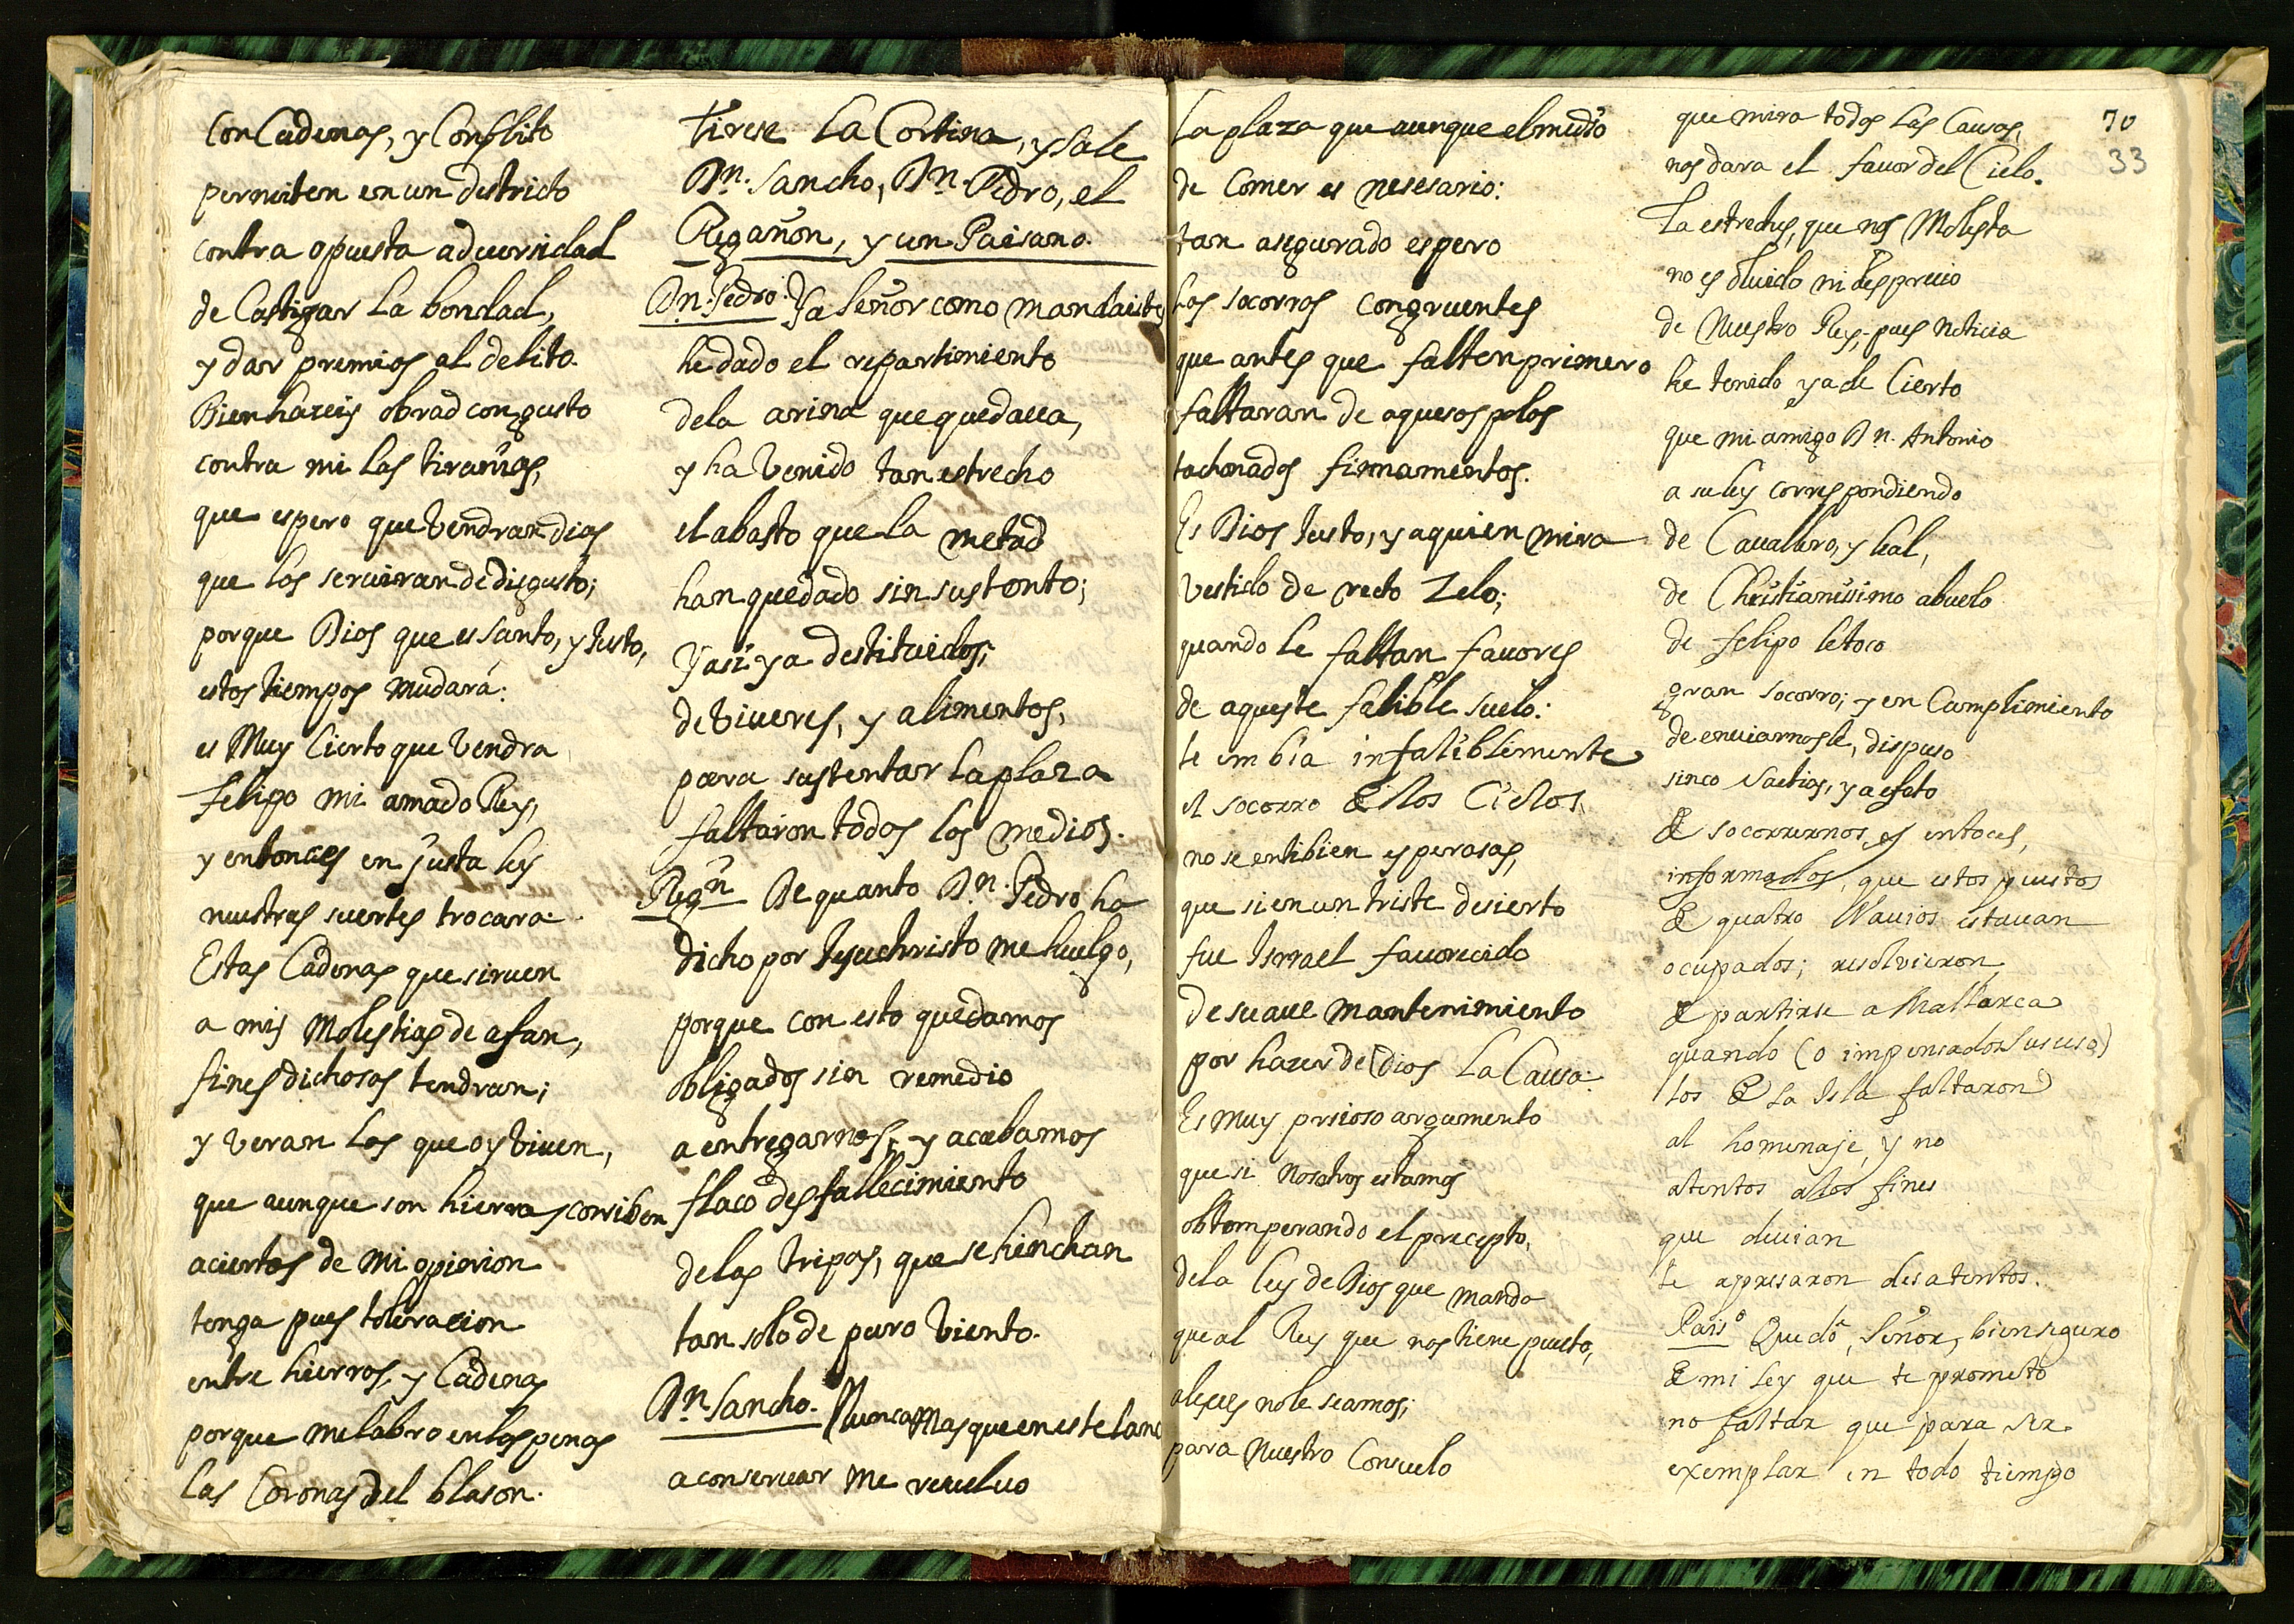 Con Cadenas, y Conflito
permiten en un destricto
contra opuesta aduersidad
de Castigar la bondad,
y dar premios al delito.
Bien hazeis obrad con gusto
contra mi las tiranias,
que espero que Vendran dias
que los seruiran de disgusto;
porque Dios que es Santo, y Justo,
estos tiempos mudará:
es Muy Cierto que Vendra
Felipo mi amado Rey,
y entonces en justa ley
nuestras suertes trocara.
Estas Cadenas que siruen
a mis Molestias de afan,
fines dichosos tendran;
y veran los que oy viuen,
que aunque son hierros, corriben
aciertos de mi opinion
tenga pues toleracion
entre hierros, y Cadenas
porque me labro en las penas
las Coronas del blason.
Tirese La Cortina, y Sale
Dn. Sancho, Dn. Pedro, el
Regañon, y un Paisano.
Dn. Pedro. Ya Señor como mandasteis
he dado el repartimiento
dela arina que quedaua,
y ha Venido tan estrecho
el abasto que la metad
han quedado sin sustento;
Y asi ya destituidos;
de viueres, y alimentos,
para sustentar la plaza
faltaron todos los medios.
Regn De quanto Dn. Pedro ha
dicho por Jesuchristo me huelgo,
porque con esto quedamos
obligados sin remedio
a entregarnos, y acabamos
flaco desfallecimiento
delas tripas, que se hinchan
tan solo de puro Viento.
Dn. Sancho. Nunca Mas que en este lanc
a conseruar me resueluo
La plaza que aunque el medio
de Comer es nesesario:
tan asegurado espero
los socorros congruentes
que antes que falten primero
faltaran de aquesos polos
tachonados firmamentos.
Es Dios Justo, y a quien mira
Vestido de recto Zelo;
quando le faltan fauores
de aqueste falible suelo:
le embia infaliblemente
el socorro de los Cielos.
no se entibien esperasas,
que si en un triste desierto
fue Isrrael fauorecido
de suaue mantenimiento
por hazer de Dios La Causa:
Es muy presioso argumento
que si Nosotros estamos
obtemperando el precepto,
dela ley de Dios que manda
que al Rey que nos tiene puesto,
aleues no le seamos;
para Nuestro Consuelo
70
33
que mira todos las Causas,
nos dara el fauor del Cielo.
La estreches, que nos Molesta
no es oluido ni despresio
de Nuestro Rey, pues noticia
he tenido ya de Cierto
que mi amigo Dn. Antonio
a su ley correspondiendo
de Cauallero, y leal,
de Christianissimo abuelo
de felipo le toco
gran socorro; y en Cumplimiento
de enuiarnosle, dispuso
sinco Saetias, y a efeto
de socorrernos, y entoces,
informados, que estos puestos
de quatro Nauios estauan
ocupados; resolvieron
de partirse a Mallorca
quando (o impensados Susesos)
los de la Isla faltaron
al homenaje, y no
atentos a los fines
que deuian
le apresaron desatentos.
Paiso Quedo, Señor, bien seguro
de mi ley que te prometo
no faltar que para ser
exemplar en todo tiempo